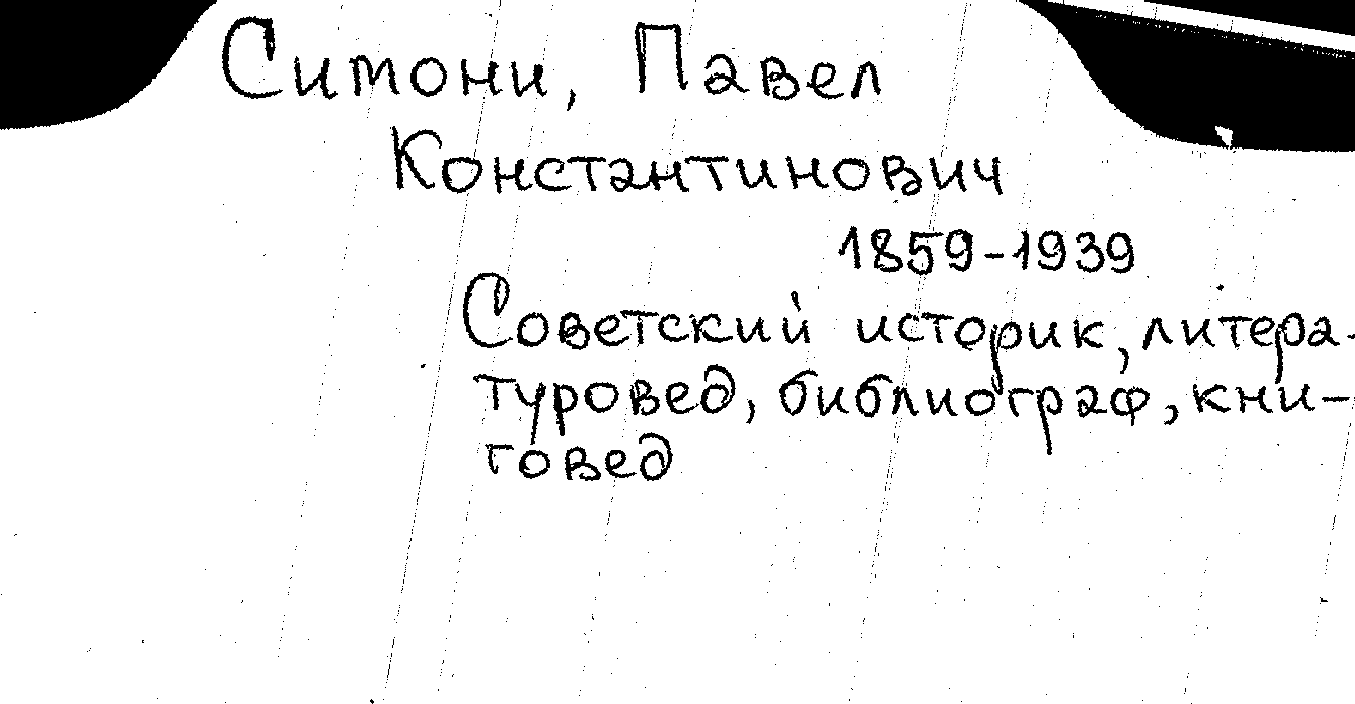 Симони, Павел
Константинович
1859-1939
Советский историк, литера-
туровед, библиограф, кни-
говед